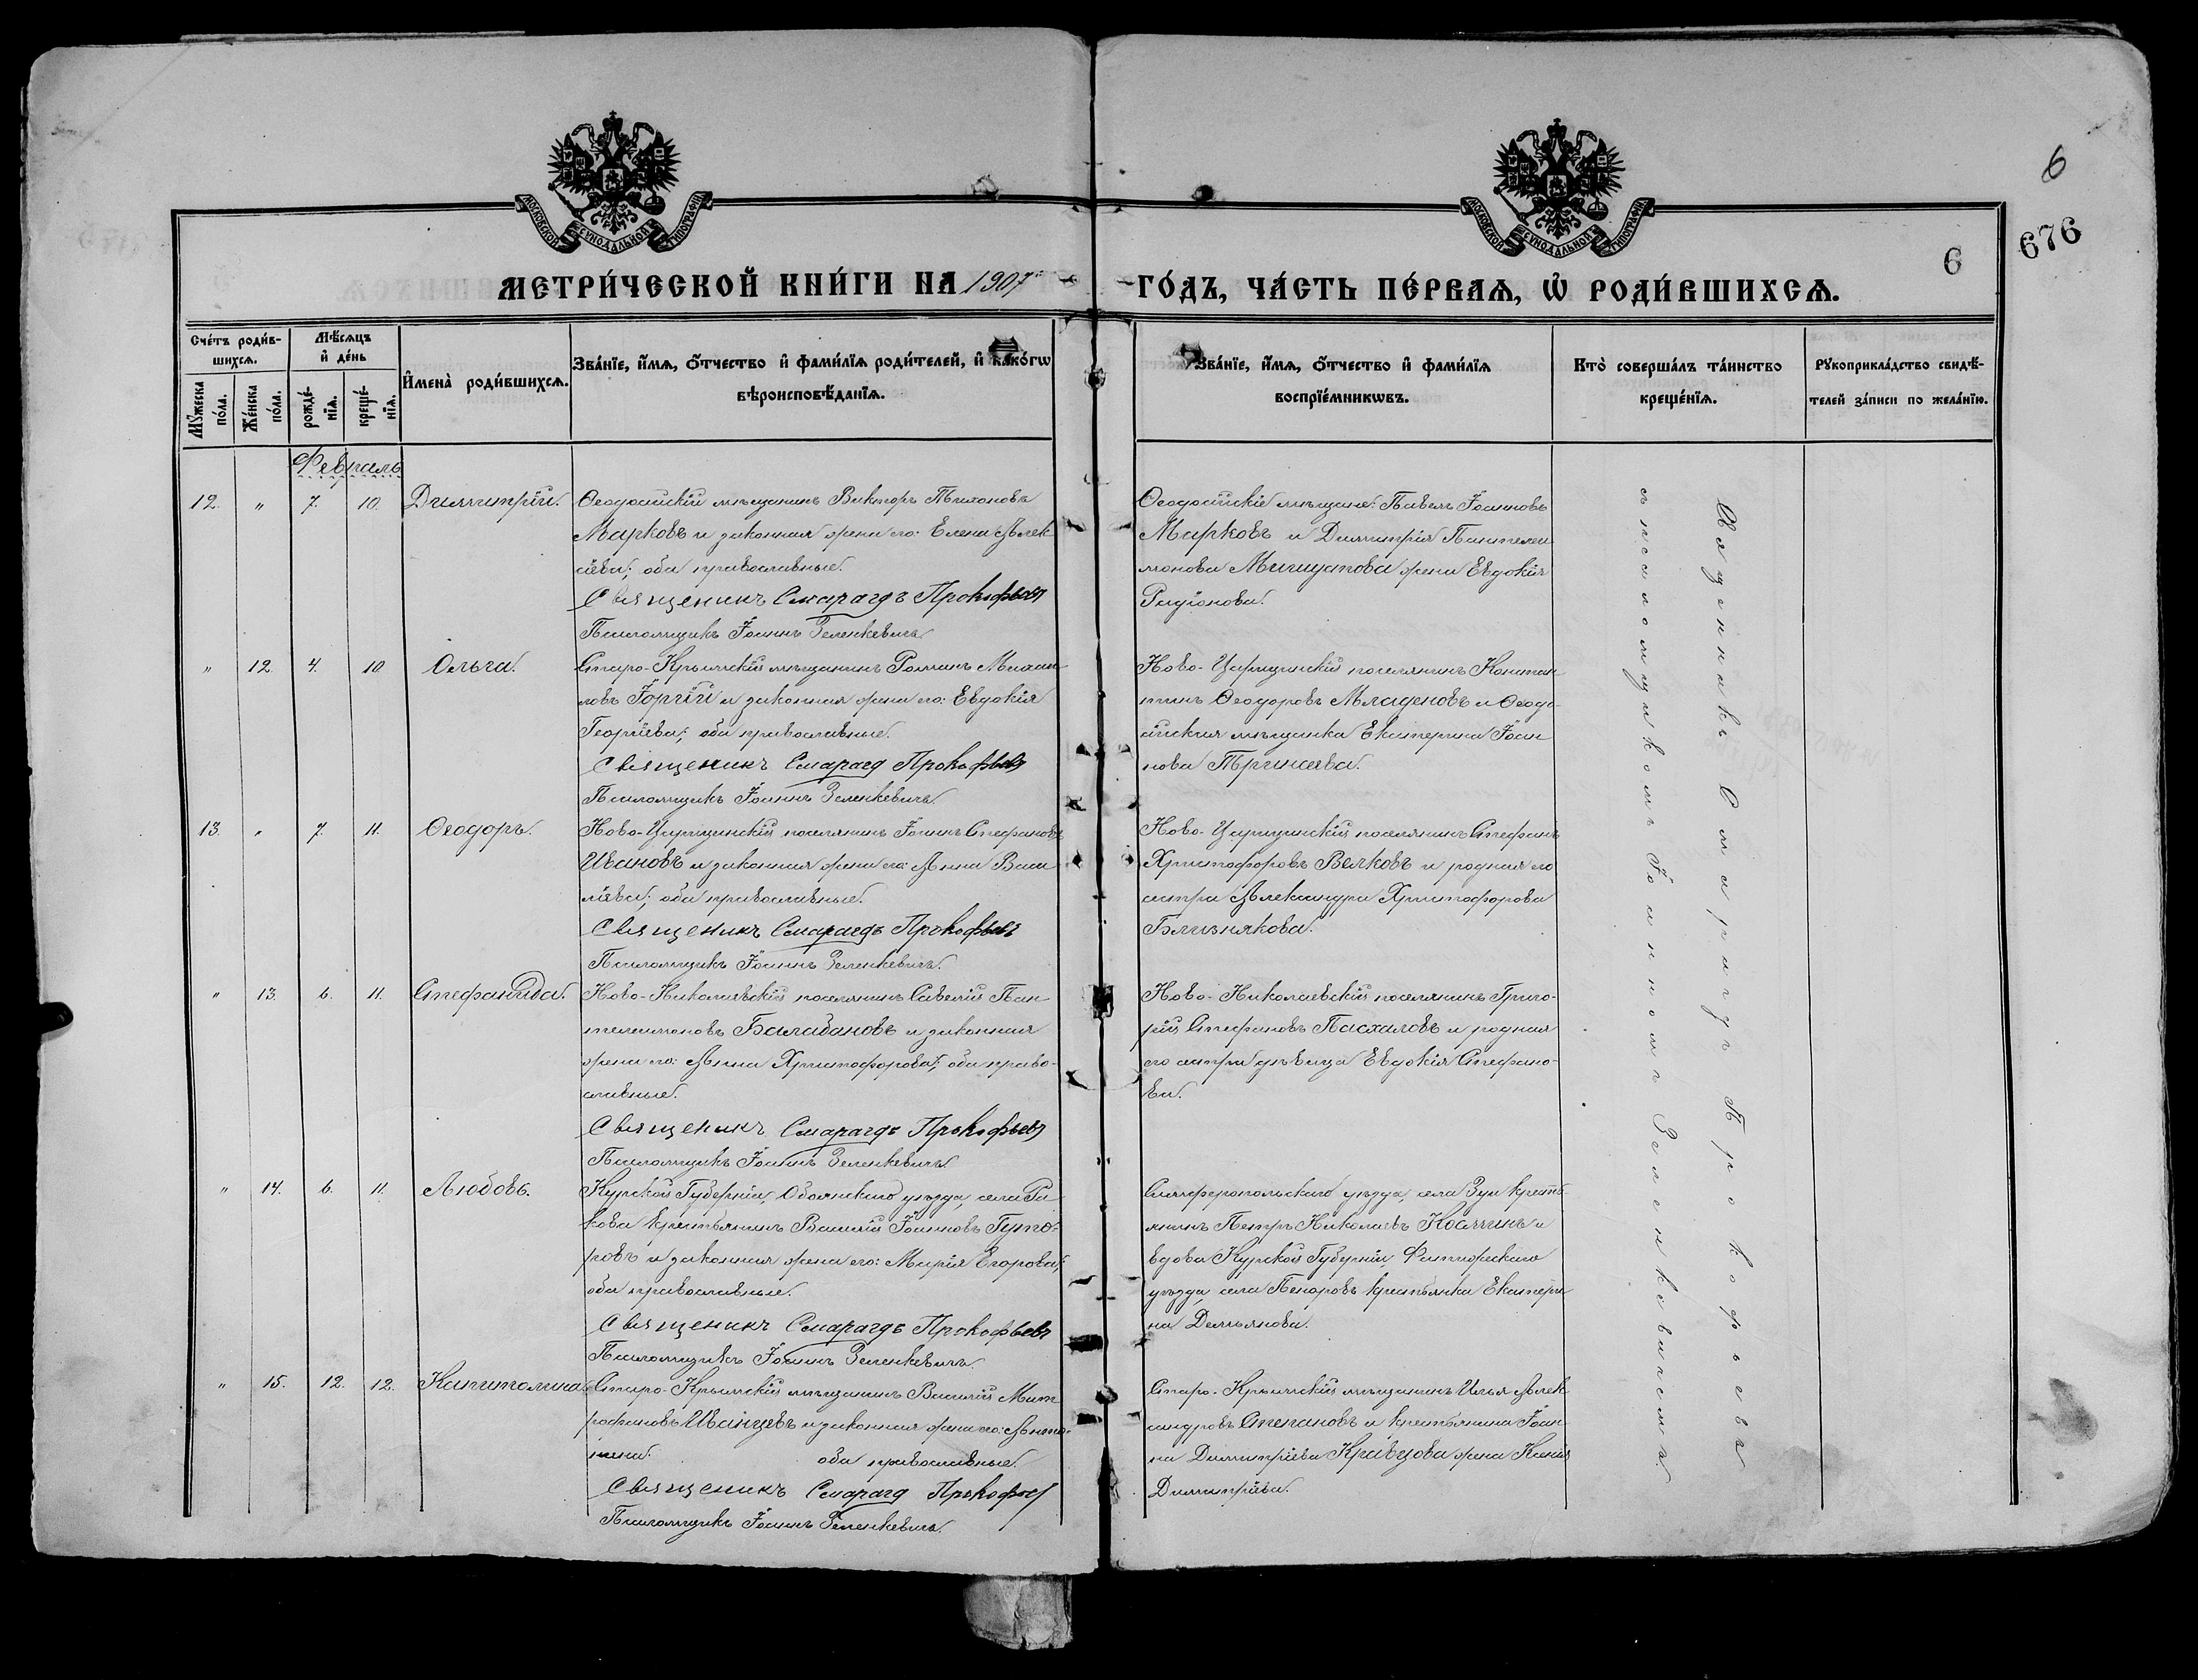 6
676
6
МОСКОВСКОЙ СѴНОДАЛЬНОЙ ТИПОГРАФІИ
МОСКОВСКОЙ СѴНОДАЛЬНОЙ ТИПОГРАФІИ
МЕТРИ́ЧЕСКОЙ КНИ́ГИ НА 1907
ГО́ДЪ, ЧА́СТЬ ПЕ́РВАѦ, Ѡ҆ РОДИ́ВШИХСѦ.
Сче́тъ роди́в-
шихсѧ.
Мꙋ́жеска по́ла.
Же́нска по́ла.
Мѣ́сѧцъ
и҆ де́нь
рожде́-
нїѧ.
креще́-
нїѧ.
И҆мена̀ роди́вшихсѧ.
Зва́нїе, и҆́мѧ, ѻ҆́тчество и҆ фами́лїѧ роди́телей, и҆ како́гѡ
вѣроисповѣ́данїѧ.
Зва́нїе, и҆́мѧ, ѻ҆́тчество и҆ фами́лїѧ
воспрїе́мникѡвъ.
Кто̀ соверша́лъ та́инство
креще́нїѧ.
Рꙋкоприкла́дство свидѣ́-
телей за́писи по жела́нїю.
Февраль
12. " 7. 10. Димитрій.
Ѳеодосійскій мѣщанинъ Викторъ Тихоновъ
Марковъ и законная жена его: Елена Алек
сіева; оба православные.
Священникъ Смарагдъ Прокофьевъ
Псаломщикъ Іоаннъ Зеленкевичъ.
Ѳеодосійскіе мѣщане: Павелъ Іоанновъ
Марковъ и Димитрія Пантелеи
монова жена Евдокія
Родіонова.
" 12. 4. 10. Ольга.
Старо-Крымскій мѣщанинъ Романъ Михаи
ловъ Іоргій и законная жена его: Евдокія
Георгіева; оба православные.
Священникъ Смарагд Прокофьевъ
Псаломщикъ Іоаннъ Зеленкевичъ.
Ново-Царицинскій поселянинъ Констан
тинъ Ѳеодоровъ Младеновъ и Ѳеодо-
сійская мѣщанка Екатерина Іоан
нова
13. " 7. 11. Ѳеодоръ.
Ново-Царицинскій поселянинъ Іоаннъ Стефановъ
Ивановъ и законная жена его: Анна Васи
ліева; оба православные.
Священникъ Смарагдъ Прокофьевъ
Псаломщикъ Іоаннъ Зеленкевичъ.
Ново-Царицинскій поселянинъ Стефанъ
Христофоровъ Велковъ и родная его
сестра Александра Христофорова
Близнякова.
" 13. 6. 11. Стефанида.
Ново-Николаевскій поселянинъ Савелій Пан
телеимоновъ Балабановъ и законная
жена его: Анна Христофорова; оба право-
славные.
Священникъ Смарагдъ Прокофьевъ
Псаломщикъ Іоаннъ Зеленкевичъ.
Ново-Николаевскій поселянинъ Григо-
рій Стефановъ Пасхаловъ и родная
его сестра дѣвица Евдокія Стефано-
ва.
" 14. 6. 11. Любовь.
Курской Губерніи, Обоянскаго уѣзда, села Ра
кова крестьянинъ Василій Іоанновъ Гуто-
ровъ и законная жена его: Марія Егорова;
оба православные.
Священникъ Смарагдъ Прокофьевъ
Псаломщикъ Іоаннъ Зеленкевичъ.
Симферопольскаго уѣзда, села Зуи кресть-
янинъ Петръ Николаевъ и
вдова Курской Губерніи,
уѣзда, села крестьянка Екатери
на Демьянова.
" 15. 12. 12. Капитолина.
Старо-Крымскій мѣщанинъ Василій Мит
рофановъ Иванцевъ и законная жена его: Анто-
нина. оба православные.
Священникъ Смарагд Прокофьев
Псаломщикъ Іоаннъ Зеленкевичъ.
Старо-Крымскій мѣщанинъ Илья Алек
сандровъ Степановъ и крестьянина Іоан
на Димитріева Кравцова жена Ксенія
Димитріева.
Священникъ Смарагдъ Прокофьевъ
съ псаломщикомъ Іоанномъ Зеленкевичемъ.